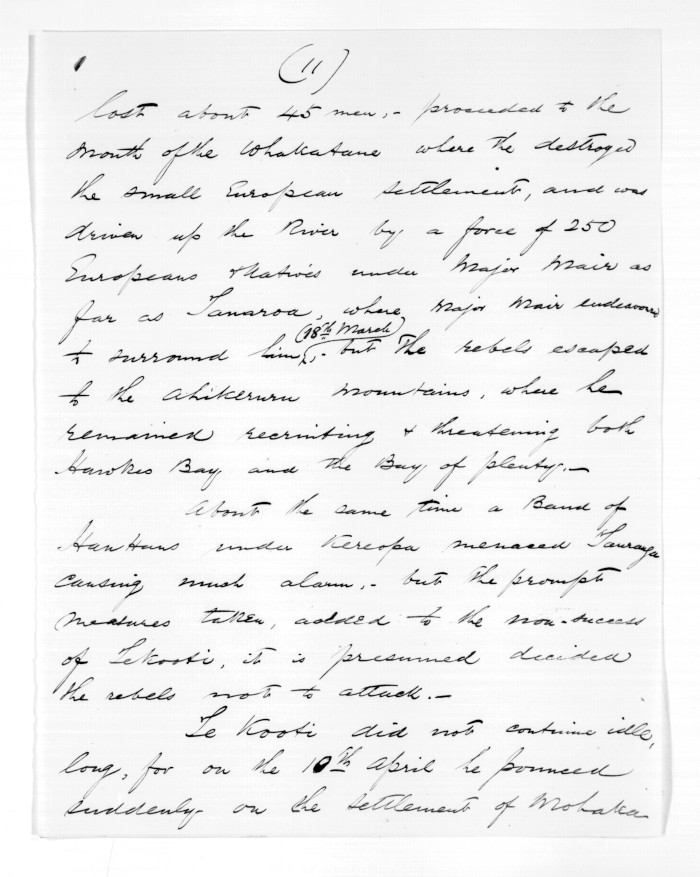 (11)
lost about 45 men, - proceeded to the
mouth of the Whakatane where the destroyed
the small European settlement, and was
driven up the River by a force of 250
Europeans & Natives under Major Mair as
far as Tanaroa, where Major Mair endeavored
(18th March)
to surround him, - but the rebels escaped
to the Ahikeruru Mountains, where he
remained recruiting & threatening both
Hawkes Bay and the Bay of plenty. -
About the same time a Band of
HauHaus under Kereopa menaced Tauranga
causing much alarm, - but the prompt
measures taken, added to the non-success
of TeKooti, it is presumed decided
the rebels not to attack. -
Te Kooti did not continue idle,
long, for on the 10th April he pounced
suddenly on the settlement of Mohaka